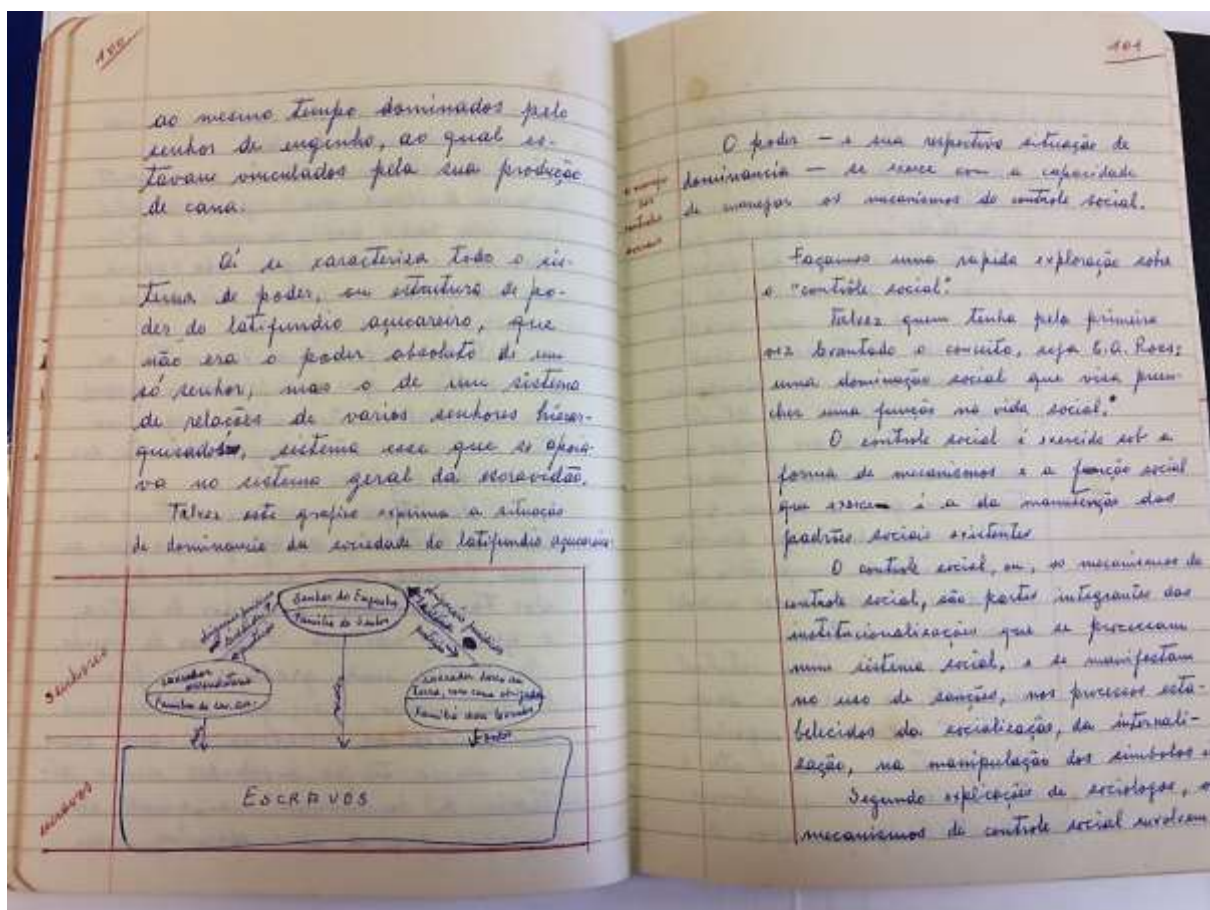 100
ao mesmo tempo dominados pelo
senhor de engenho, ao qual es-
tavam vinculados pela sua produção
de cana.
Aí se caracteriza todo o sis-
tema de poder, ou estrutura de po-
der do latifundio açucareiro, que
não era o poder absoluto de um
só senhor, mas o de um sistema
de relações de varios senhores hierar-
quisados, sistema esse que se apoia-
va no sistema geral da escravidão.
Talvez este grafico exprima a situação
de dominancia da sociedade do latifundio açucareiro:
Senhores
Senhor de Engenho
Familia do Senhor
proteção
Lavrador
Familia do Lav.
Lavrador livre da
terra, com cana obrigada
Familia dos lavrad.
escravos
ESCRAVOS
101
O poder — e sua respectiva situação de
dominancia — se exerce com a capacidade
de manejar os mecanismos do controle social.
o manejo
dos
controles
sociais
Façamos uma rapida exploração sobre
o "contrôle social".
Talvez quem tenha pela primeira
vez levantado o conceito, seja E.A. Ross:
uma dominação social que visa preen-
cher uma função na vida social."
O controle social é exercido sob a
forma de mecanismos e a função social
que exerce é a da manutenção dos
padrões sociais existentes
O controle social, ou, os mecanismos de
controle social, são partes integrantes das
institucionalizações que se processam
num sistema social, e se manifestam
no uso de sanções, nos processos esta-
belecidos da socialização, da internali-
zação, na manipulação dos simbolos
Segundo explicação de sociologos, o
mecanismos de controle social envolvem